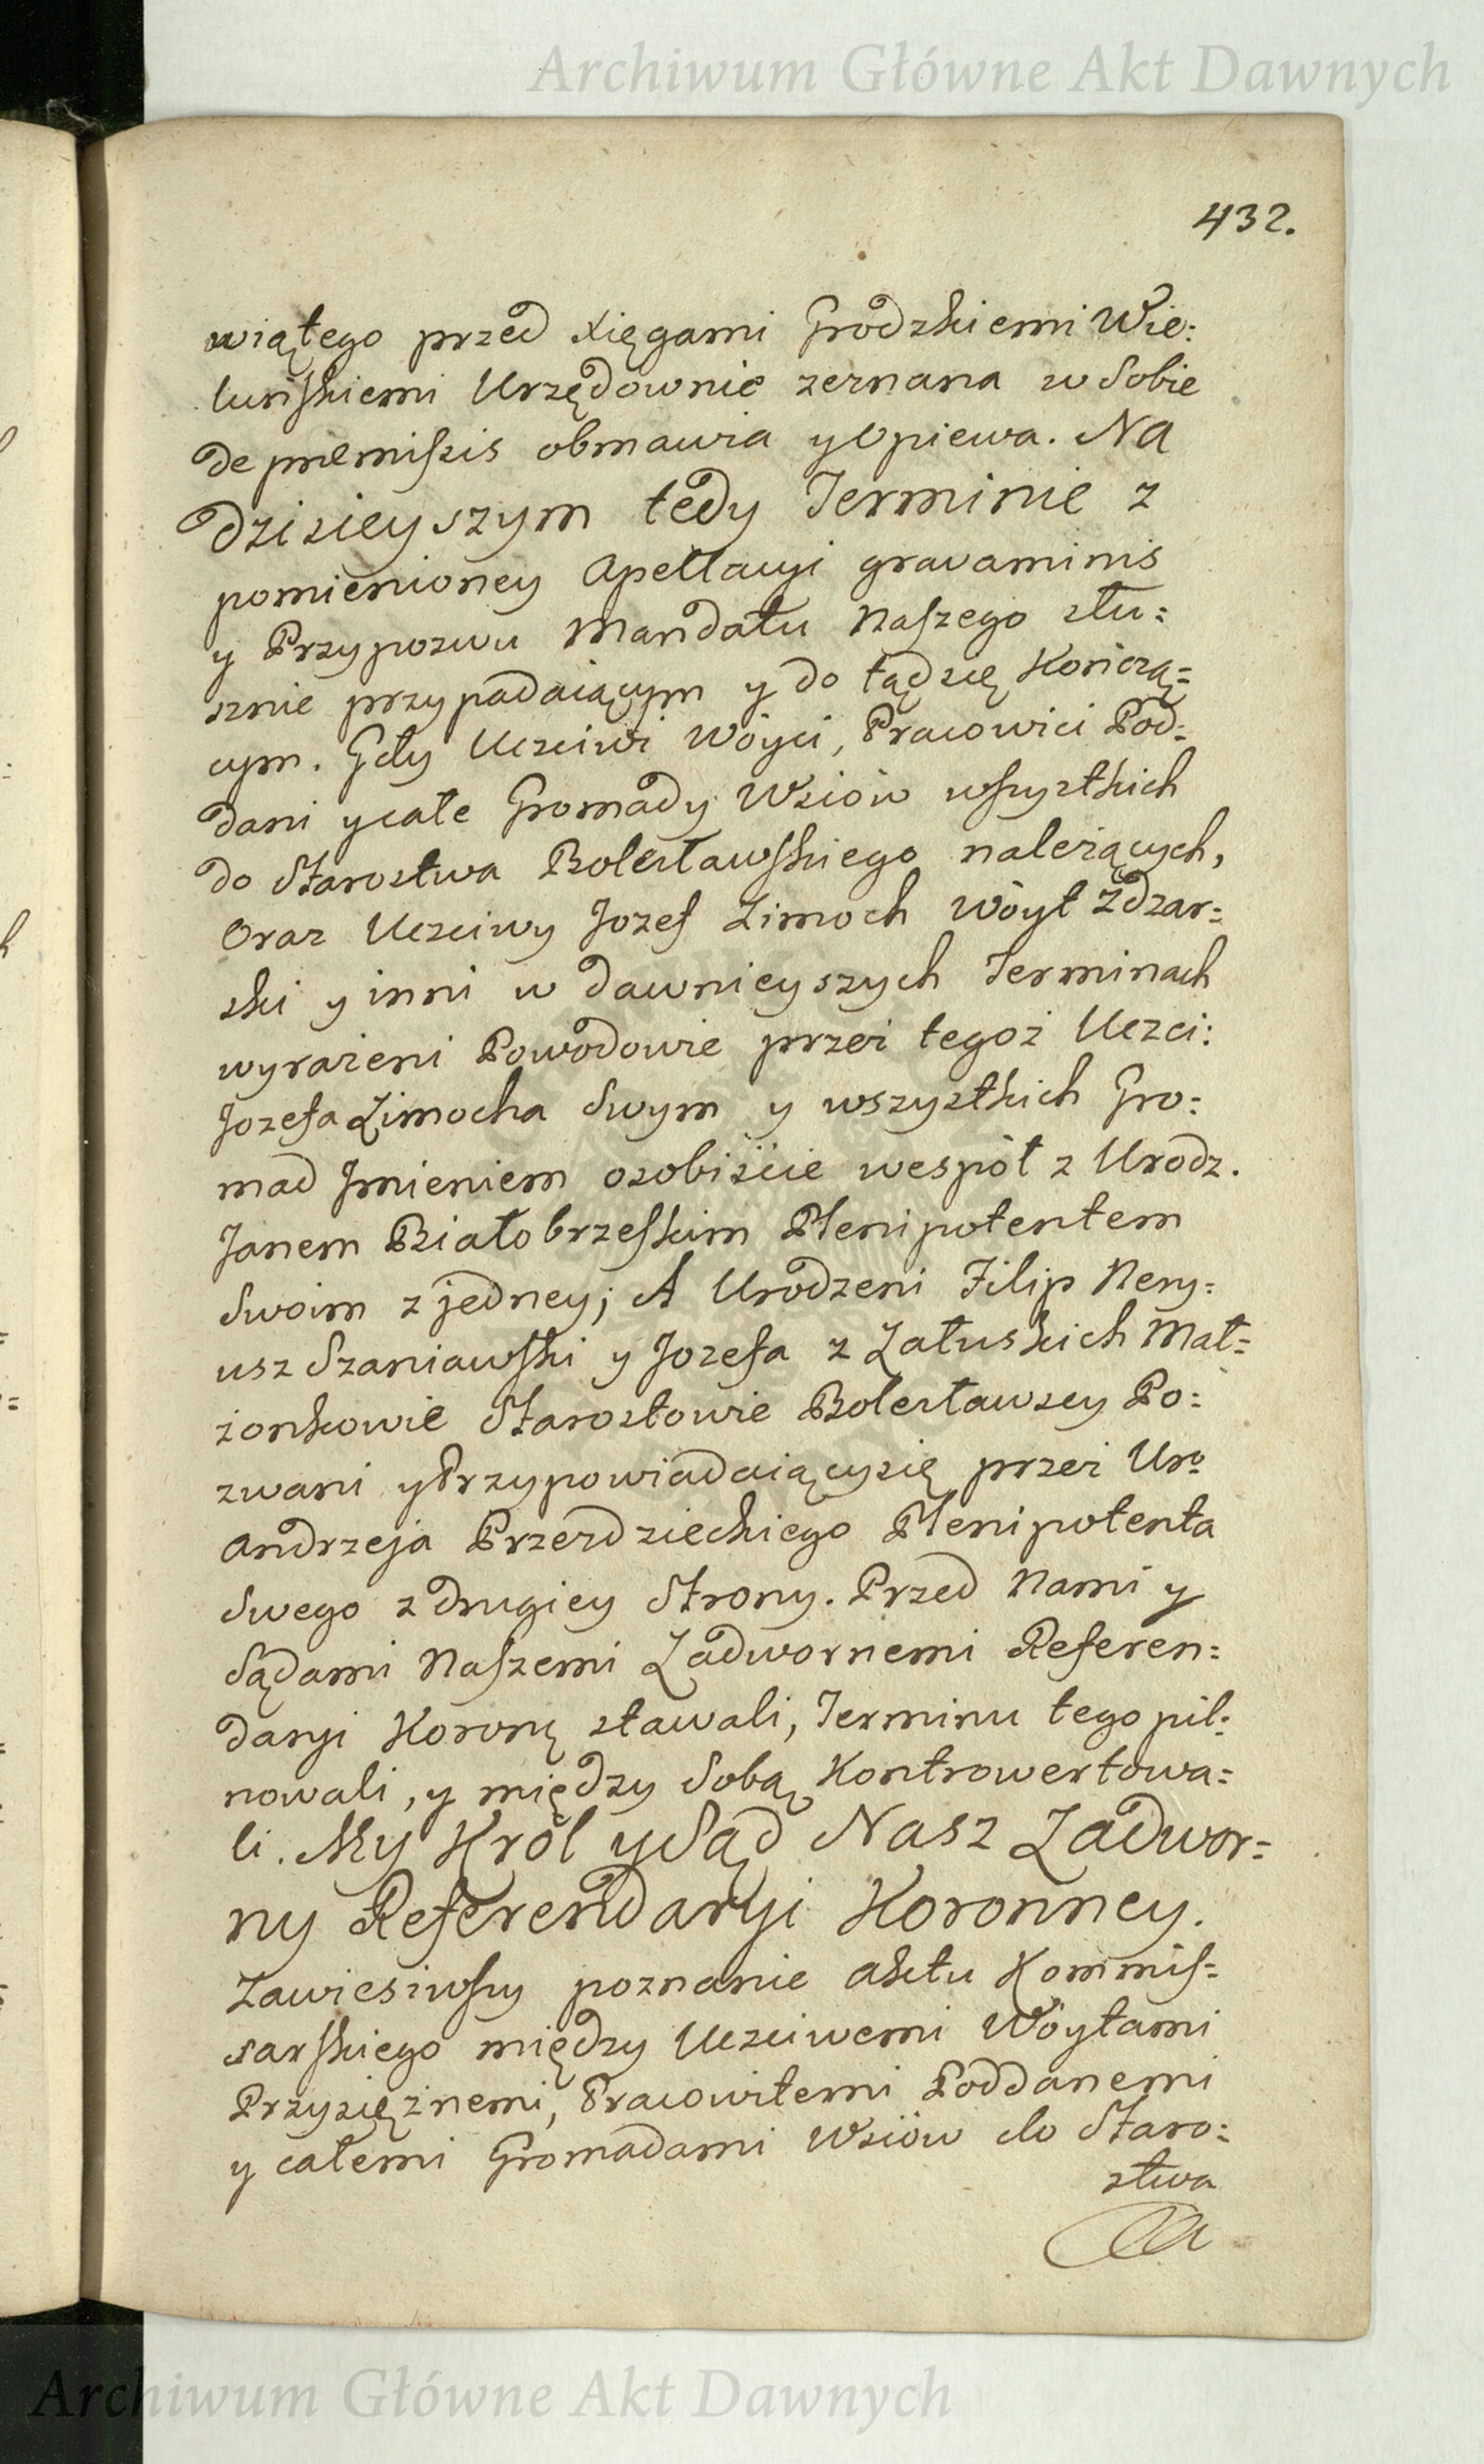 Archiwum Główne Akt Dawnych
432.
wiątego przed Xięgami Grodzkiemi Wie:
luńskiemi Urzędownie zeznana w Sobie
de præmissis obmawia y Opiewa. Na
dzisieyszym tedy Terminie z
pomienioney Apellacyi gravaminis
y Przypozwu Mandatu Naszego słu:
sznie przypadaiącym y do tąd się Kończą=
cym. Gdy Uczciwi Wóyci, Pracowici Pod:
dani y całe Gromady Wsiów wszystkich
do Starostwa Bolesławskiego należących,
Oraz Uczciwy Jozef Zimoch Wóyt Zdzar:
ski y inni w dawnieyszych Terminach
wyrażeni Powodowie przez tegoż Uczci:
Jozefa Zimocha Swym y wszystkich Gro:
mad Jmieniem osobiście wespół z Urodz.
Janem Białobrzeskim Plenipotentem
Swoim z jedney; A Urodzeni Filip Nery:
usz Szaniawski y Jozefa z Załuskich Mał=
żonkowie Starostowie Bolesławscy Po:
zwani y Przypowiadaiący się przez Uro
Andrzeja Przezdzieckiego Plenipotenta
Swego z drugiey Strony. Przed Nami y
Sądami Naszemi Zadwornemi Referen:
daryi Koronny stawali, Terminu tego pil:
nowali, y między Sobą Kontrowertowa=
li. My Król y Sąd Nasz Zadwor=
ny Referendaryi Koronney.
Zawiesiwszy poznanie aktu Kommis=
sarskiego między Uczciwemi Wóytami
Przysiężnemi, Pracowitemi Poddanemi
y całemi Gromadami Wsiów do Staro:
stwa
Archiwum Główne Akt Dawnych